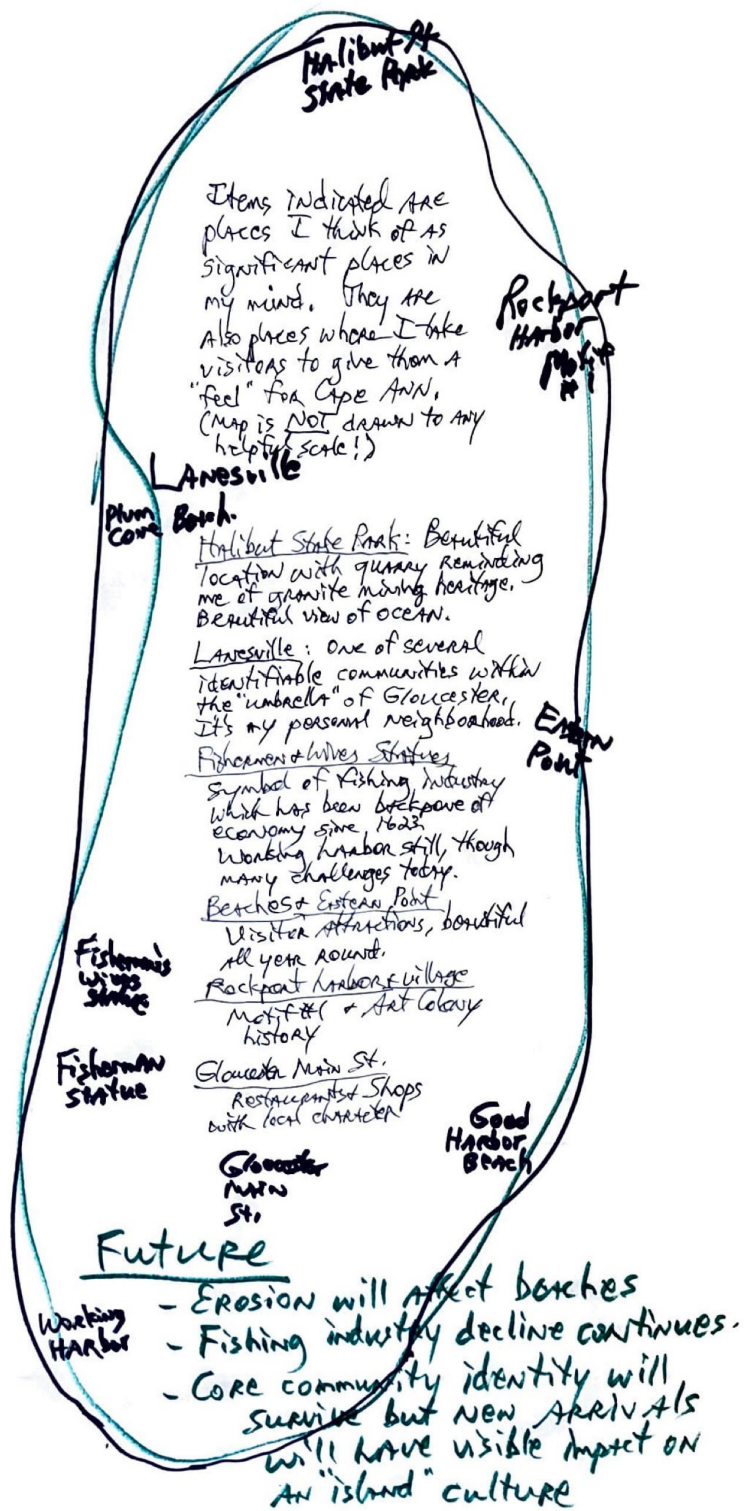 Halibut Pt
State Park
Items indicated are
places I think of as
significant places in
my mind. They are
also places where I take
visitors to give them a
"feel" for Cape Ann.
(Map is NOT drawn to any
helpful scale!)
Rockport
Harbor
Motif
#1
Lanesville
Plum Cove Beach.
Halibut State Park: Beautiful
location with quarry reminding
me of granite mining heritage.
Beautiful view of ocean.
Lanesville: One of several
identifiable communities within
the "umbrella" of Gloucester.
It's my personal neighborhood.
Eastern
Point
Fishermen & Wives Statues
Symbol of fishing industry
which has been backbone of
economy sine 1623.
Working harbor still, though
many challenges today.
Beaches & Eastern Point
Visitor attractions, beautiful
all year round.
Fisherman's
Wives
Statue
Rockport harbor & village
Motif #1 & Art Colony
history
Fisherman
Statue
Gloucester Main St.
Restaurants & Shops
with local character
Good
Harbor
Beach
Gloucester
Main
St.
Future
- Erosion will affect beaches
Working
Harbor
- Fishing industry decline continues.
- Core community identity will
survive but new arrivals
will have visible impact on
an "island" culture